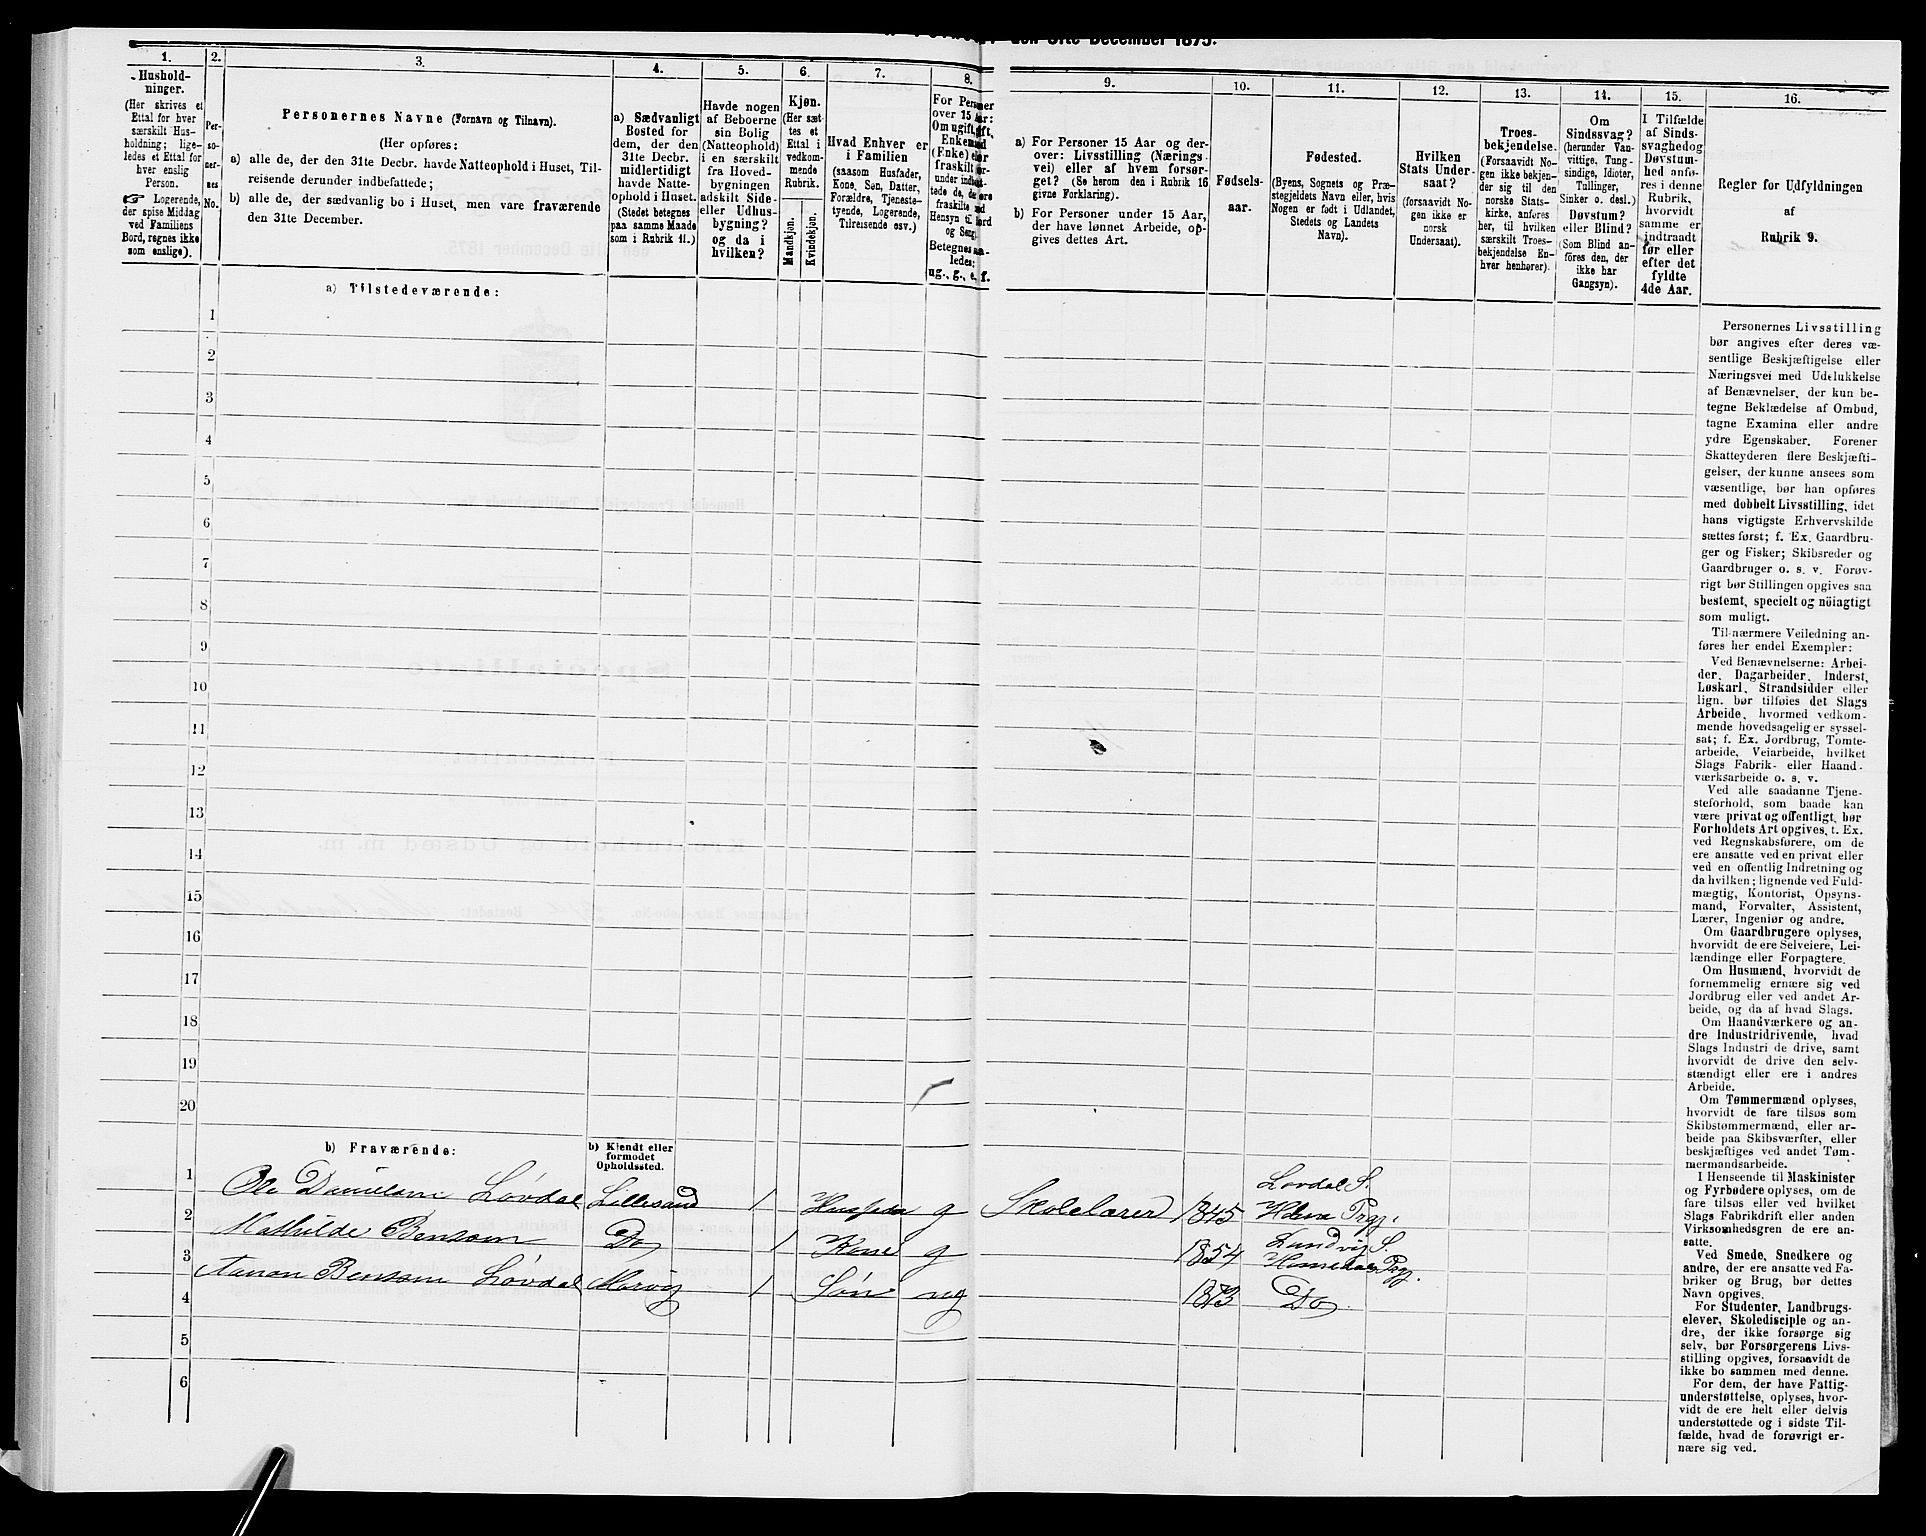 den 31te December 1875.
1.
Hushold-
ninger.
(Her skrives et
Ettal for hver
særskilt Hus-
holdning; lige-
ledes et Ettal for
hver enslig
Person.
☞ Logerende,
der spise Middag
ved Familiens
Bord, regnes ikke
som enslige).
2.
Per-
so-
ner-
nes
No.
3.
Personernes Navne (Fornavn og Tilnavn).
(Her opføres:
a) alle de, der den 31te Decbr. havde Natteophold i Huset, Til-
reisende derunder indbefattede;
b) alle de, der sædvanlig bo i Huset, men vare fraværende
den 31te December.
4.
a) Sædvanligt
Bosted for
dem, der den
31te Decbr.
midlertidigt
havde Natte-
ophold i Huset.
(Stedet betegnes
paa samme Maade
som i Rubrik 11.)
5.
Havde nogen
af Beboerne
sin Bolig
(Natteophold)
i en særskilt
fra Hoved-
bygningen
adskilt Side-
eller Udhus-
bygning?
og da i
hvilken?
6.
Kjøn.
(Her sæt-
tes et
Ettal i
vedkom-
mende
Rubrik.
Mandkjøn.
Kvindekjøn.
7.
Hvad Enhver er
i Familien
(saasom Husfader,
Kone, Søn, Datter,
Forældre, Tjeneste-
tyende, Logerende,
Tilreisende osv.)
8.
For Personer
over 15 Aar:
Om ugift, gift,
Enkemand
(Enke) eller
fraskilt
under indbefat-
tede de, der ere
fraskilte med
Hensyn til Bord
og Seng.
Betegnes saa-
ledes:
ug., g., e., f.
9.
a) For Personer 15 Aar og der-
over: Livsstilling (Nærings-
vei) eller af hvem forsør-
get? (Se herom den i Rubrik 16
givne Forklaring).
b) For Personer under 15 Aar,
der have lønnet Arbeide, op-
gives dettes Art.
10.
Fødsels-
aar.
11.
Fødested.
(Byens, Sognets og Præ-
stegjeldets Navn eller, hvis
Nogen er født i Udlandet,
Stedets og Landets
Navn).
12.
Hvilken
Stats Under-
saat?
(forsaavidt No-
gen ikke er
norsk
Undersaat).
13.
Troes-
bekjendelse.
(Forsaavidt No-
gen ikke bekjen-
der sig til den
norske Stats-
kirke, anføres
her, til hvilken
særskilt Troes-
bekjendelse En-
hver henhører).
14.
Om
Sindssvag?
(herunder Van-
vittige, Tung-
sindige, Idioter,
Tullinger,
Sinker o. desl.)
Døvstum?
eller Blind?
(Som Blind an-
føres den, der
ikke har
Gangsyn).
15.
I Tilfælde
af Sinds-
svaghed og
Døvstum-
hed anfø-
res i denne
Rubrik,
hvorvidt
samme er
indtraadt
før eller
efter det
fyldte
4de Aar.
16.
Regler for Udfyldningen
af
Rubrik 9.
a) Tilstedeværende:
1
2
3
4
5
6
7
8
9
10
11
12
13
14
15
16
17
18
19
20
b) Fraværende:
b) Kjendt eller
formodet
Opholdssted.
1 Ole Danielsen Lovdal Lillesand 1 Husfader g Skolelærer 1845 Lovdal S.
Holme Prgj.
2 Mathilde Bensom Do 1 Kone g 1854 Landvig S.
Homedals Prgj.
3 Aanon Bensom Løvdal Morvig 1 Søn ug 1873 Do
4
5
6
Personernes Livsstilling
bør angives efter deres væ-
sentlige Beskjæftigelse eller
Næringsvei med Udelukkelse
af Benævnelser, der kun be-
tegne Beklædelse af Ombud,
tagne Examina eller andre
ydre Egenskaber. Forener
Skatteyderen flere Beskjæfti-
gelser, der kunne ansees som
væsentlige, bør han opføres
med dobbelt Livsstilling, idet
hans vigtigste Erhvervskilde
sættes først; f. Ex. Gaardbru-
ger og Fisker; Skibsreder og
Gaardbruger o. s. v. Forøv-
rigt bør Stillingen opgives saa
bestemt, specielt og nöiagtigt
som muligt.
Til nærmere Veiledning an-
føres her endel Exempler:
Ved Benævnelserne: Arbei-
der, Dagarbeider, Inderst,
Løskarl, Strandsidder eller
lign. bør tilføies det Slags
Arbeide, hvormed vedkom-
mende hovedsagelig er syssel-
sat; f. Ex. Jordbrug, Tomte-
arbeide, Veiarbeide, hvilket
Slags Fabrik- eller Haand-
værksarbeide o. s. v.
Ved alle saadanne Tjene-
steforhold, som baade kan
være privat og offentligt, bør
Forholdets Art opgives, t. Ex.
ved Regnskabsførere, om de
ere ansatte ved en privat eller
ved en offentlig Indretning og
da hvilken; lignende ved Fuld-
mægtig, Kontorist, Opsyns-
mand, Forvalter, Assistent,
Lærer, Ingeniør og andre.
Om Gaardbrugere oplyses,
hvorvidt de ere Selveiere, Lei-
lændinge eller Forpagtere.
Om Husmænd, hvorvidt de
fornemmelig ernære sig ved
Jordbrug eller ved andet Ar-
beide, og da af hvad Slags.
Om Haandværkere og an-
dre Industridrivende, hvad
Slags Industri de drive, samt
hvorvidt de drive den selv-
stændigt eller ere i andres
Arbeide.
Om Tømmermænd oplyses,
hvorvidt de fare tilsøs som
Skibstømmermænd, eller ar-
beide paa Skibsværfter, eller
beskjæftiges ved andet Tøm-
mermandsarbeide.
I Henseende til Maskinister
og Fyrbødere oplyses, om de
fare tilsøs eller ved hvilket
Slags Fabrikdrift eller anden
Virksomhedsgren de ere an-
satte.
Ved Smede, Snedkere og
andre, der ere ansatte ved Fa-
briker og Brug, bør dettes
Navn opgives.
For Studenter, Landbrugs-
elever, Skoledisciple og an-
dre, der ikke forsørge sig
selv, bør Forsørgerens Livs-
stilling opgives, forsaavidt de
ikke bo sammen med denne.
For dem, der have Fattig-
understøttelse, oplyses, hvor-
vidt de ere helt eller delvis
understøttede og i sidste Til-
fælde, hvad de forøvrigt er-
nære sig ved.